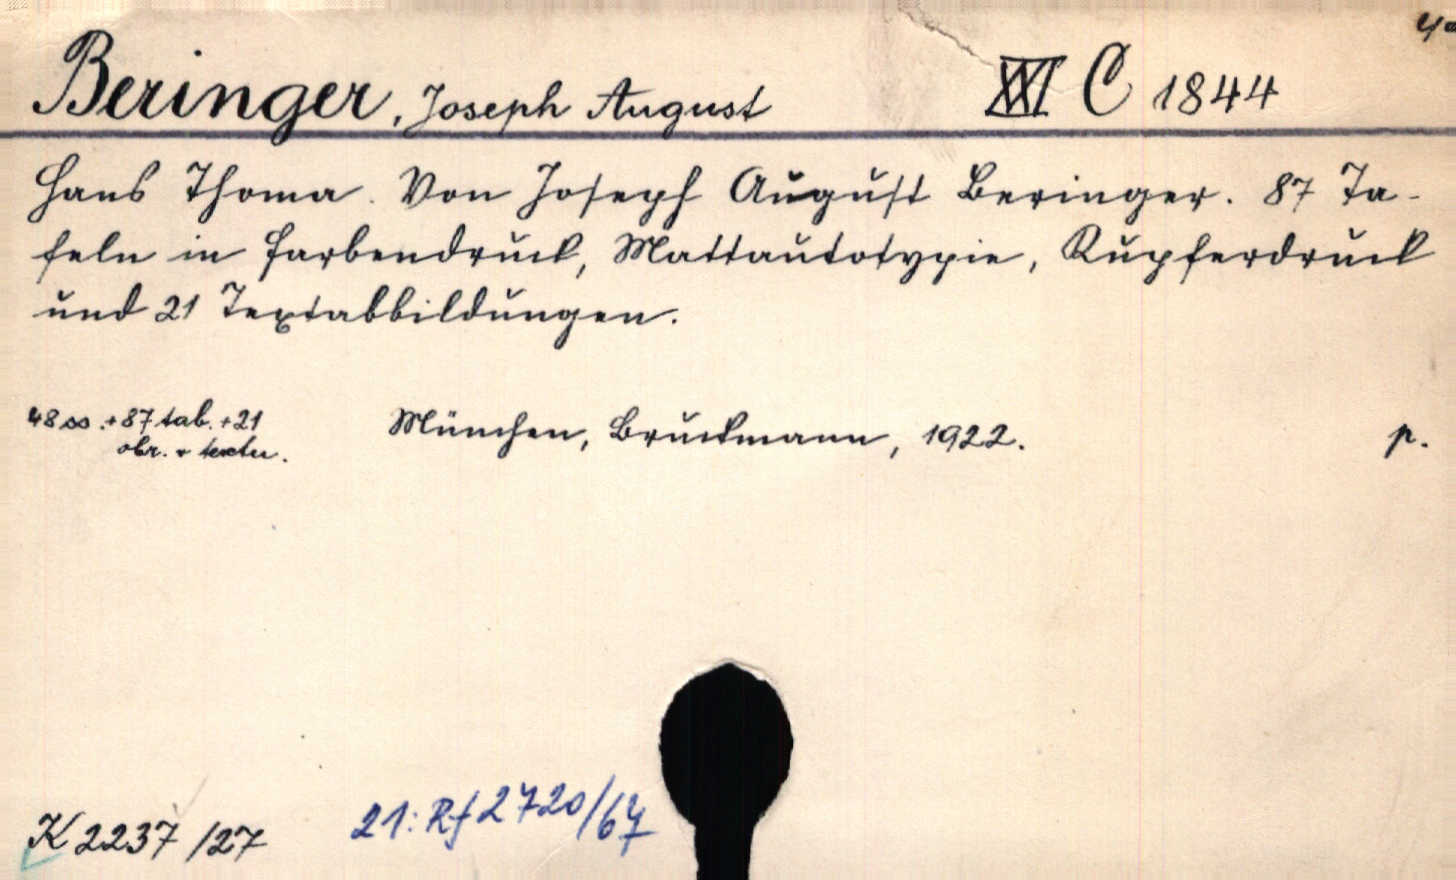 4°
Beringer, Joseph August XXI C 1844
Hans Thoma. Von Joseph August Beringer. 87 Ta-
feln in Farbendruck, Mattautotypie, Kupferdruck
und 21 Textabbildungen.
48 ss. + 87 tab. + 21
obr. v textu.
München, Bruckmann, 1922. p.
K 2237/27 21: Rf 2720/67